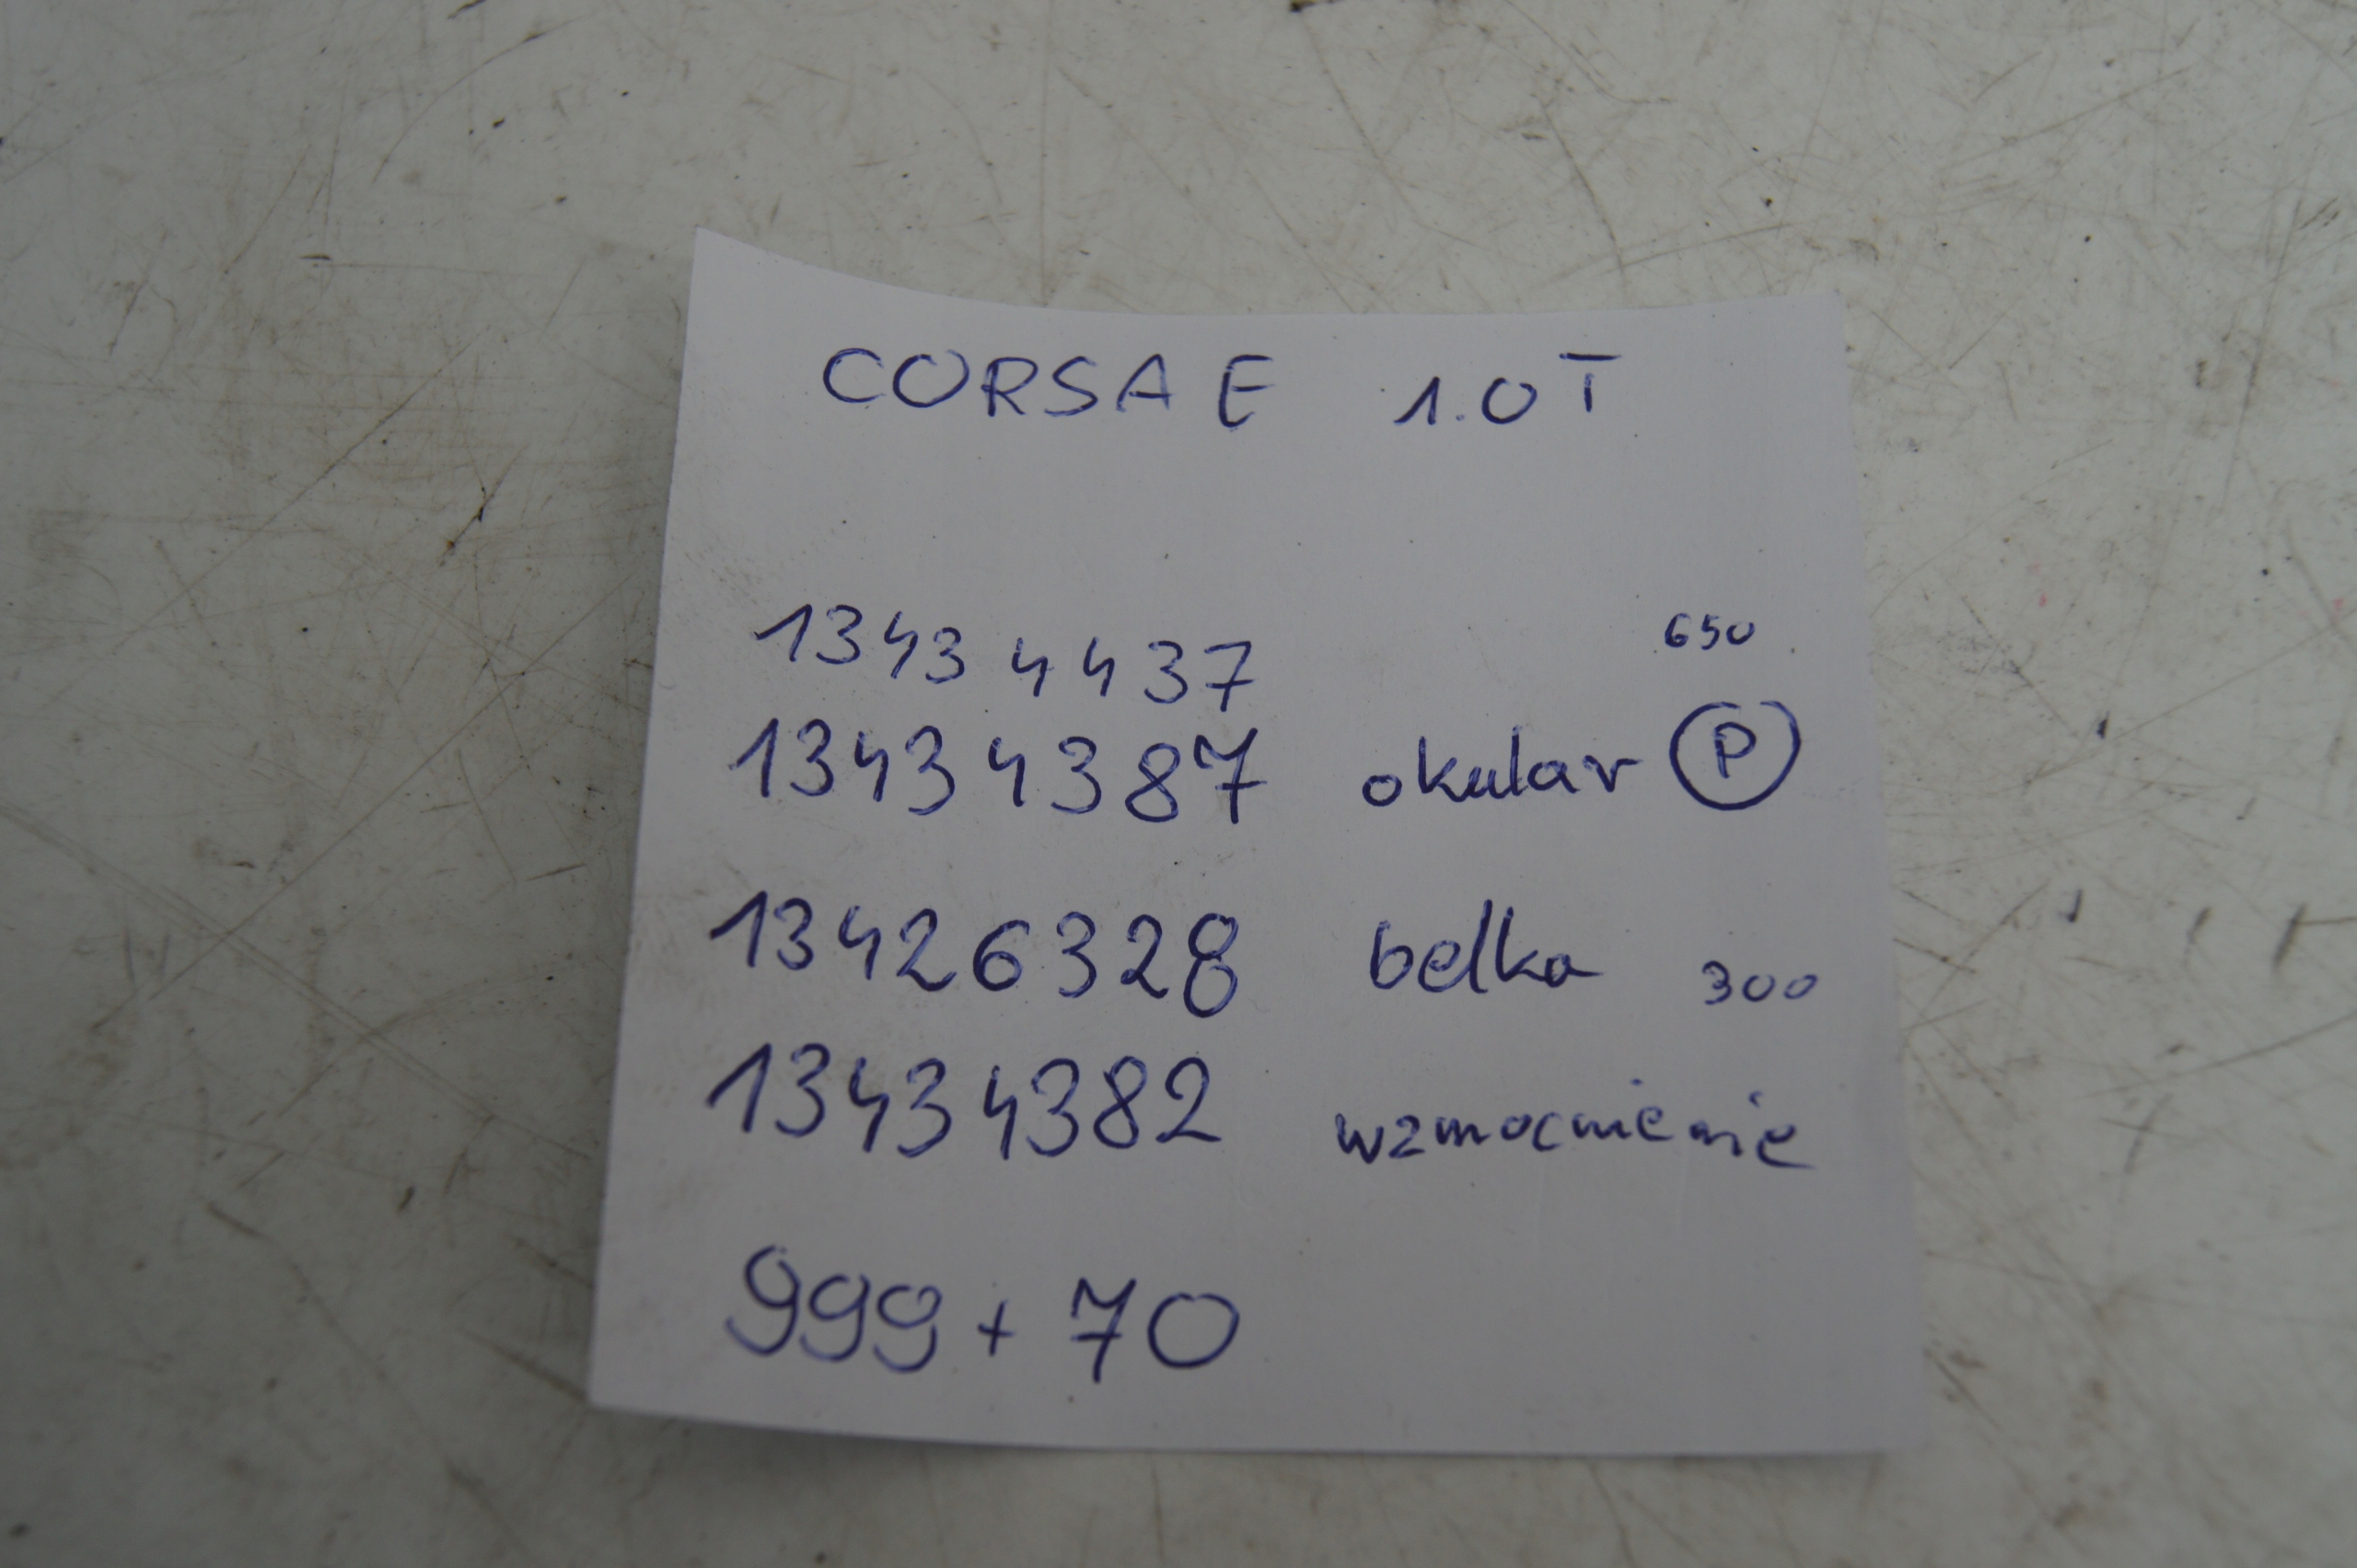 CORSA E 1.0T
13434437 650
13434387 okular P
13426328 belka 300
13434382 wzmocnienie
999 + 70